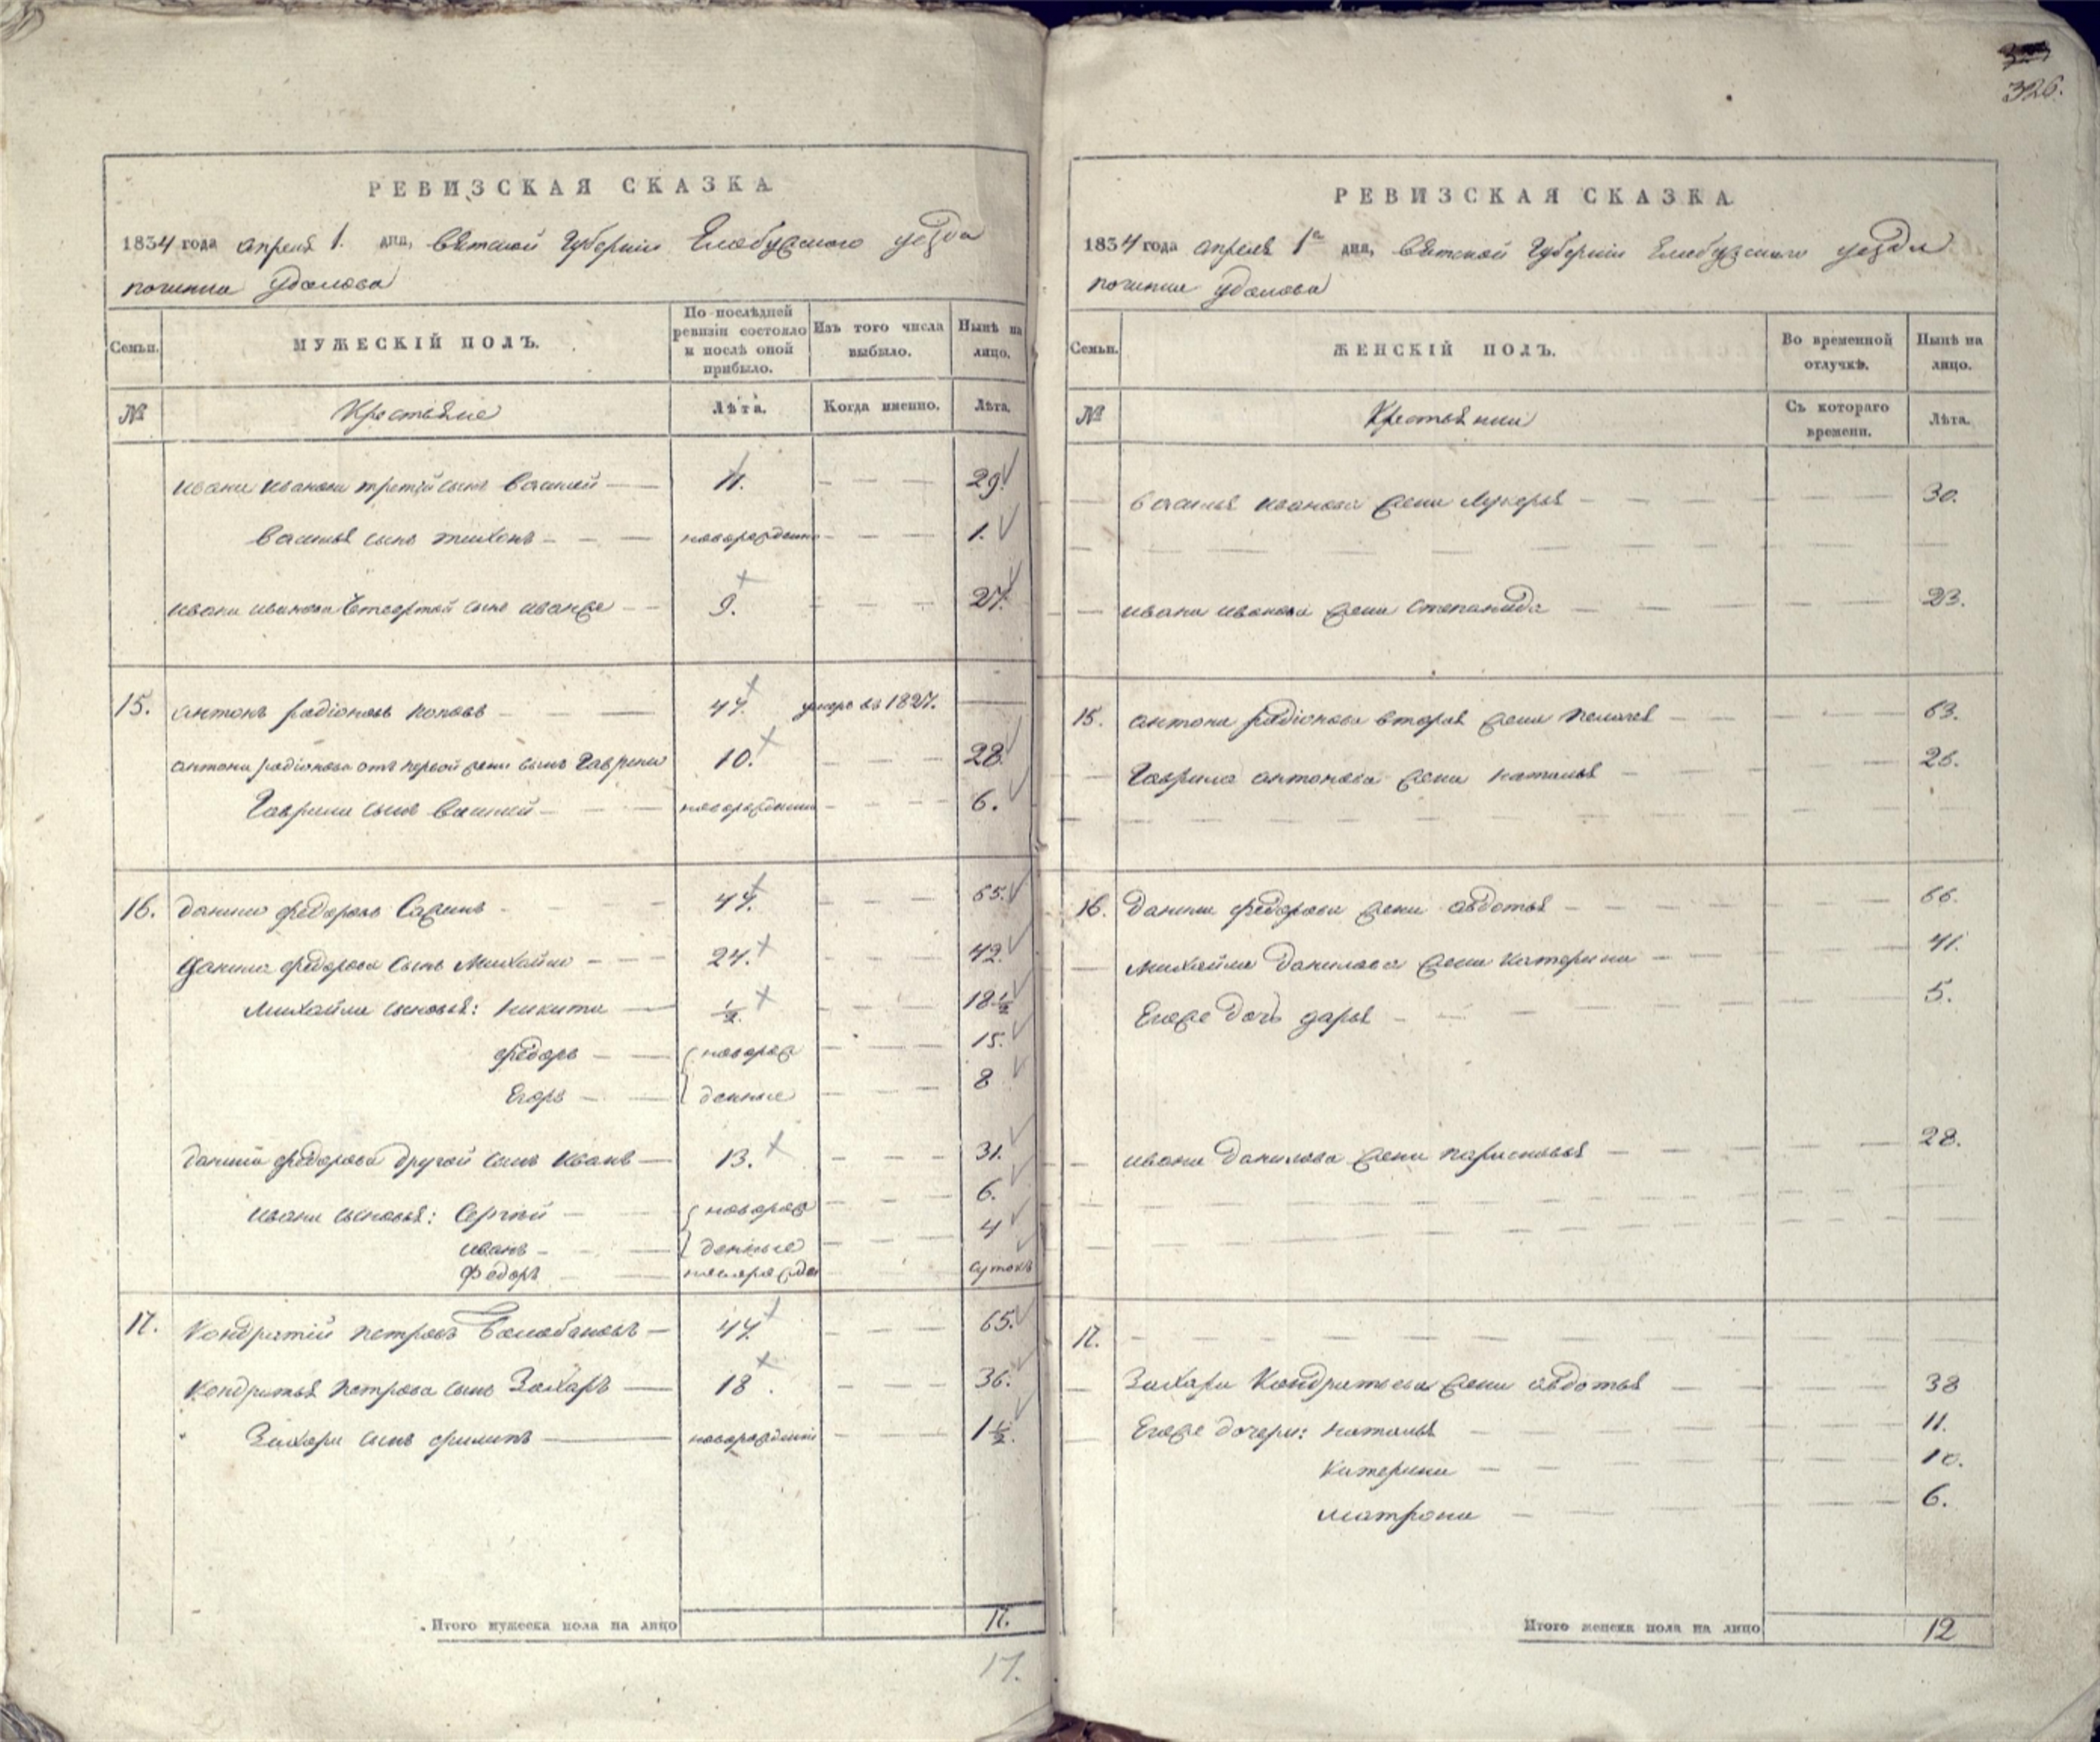 326.
РЕВИЗСКАЯ СКАЗКА
1834 года апреля 1. дня, Вятской Губернии Елабужского уезда
починка Удалова
Семьи.
МУЖЕСКІЙ ПОЛЪ.
По послѣдней ревизіи состояло и послѣ оной прибыло.
Изъ того числа выбыло.
Нынѣ на лицо.
№
Крестьяне
Лѣта.
Когда именно.
Лѣта.
Ивана Иванова третій сынъ Василей — 11. — — — 29.
Василья сынъ Тихонъ — — — новорожденн — — — 1.
Ивана Иванова четвертой сынъ Иванже — — 9. — — — 27.
15. Антонъ Радіоновъ Поповъ — — — 47. умеръ въ 1827. —
Антона Радіонова отъ первой жены сынъ Гаврила 10. — — — 28.
Гаврила сынъ Василей — — — новорожденн — — — 6.
16. Данила Федоровъ Сажинъ — — — 47. — — — 65.
Данила Федорова сынъ Михайло — — — 24. — — — 42.
Михайла сыновья: Никита — ½. — — — 18½
Федоръ — — { новорож — — — 15.
Егоръ — — { денные — — — 8
Данила Федорова другой сынъ Иванъ — 13. — — — 31.
Ивана сыновья: Сергей — — { новорож — — — 6.
Иванъ — — { денные — — — 4
Федоръ — — новорожде сутокъ
17. Кондратій Петровъ Балобановъ — 47. — — — 65.
Кондратья Петрова сынъ Захаръ — 18. — — — 36.
Захара сынъ Филипъ — новорожденн — — 1½.
Итого мужеска пола на лицо 17.
17.
РЕВИЗСКАЯ СКАЗКА
1834 года апреля 1го дня, Вятской Губернии Елабужского уезда
починка Удалова
Семьи.
ЖЕНСКІЙ ПОЛЪ.
Во временной отлучкѣ.
Нынѣ на лицо.
№
Крестьянки
Съ котораго времени.
Лѣта.
Василья Иванова жена Лукерья — — — — 30.
Ивана Иванова жена Степанида — — — — 23.
15. Антона Радіонова вторая жена Пелагея — — — — 63.
Гаврила Антонова жена Наталья — — — — 26.
16. Данила Федорова жена Авдотья — — — — 66.
Михайла Данилова жена Катерина — — — — 41.
Егоже дочь Дарья — — — — 5.
Ивана Данилова жена Парасковья — — — — 28.
17. — — — —
Захара Кондратьева жена Авдотья — — — — 38
Егоже дочери: Наталья — — — — 11.
Катерина — — — — 10.
Матрона — — — — 6.
Итого женска пола на лицо 12